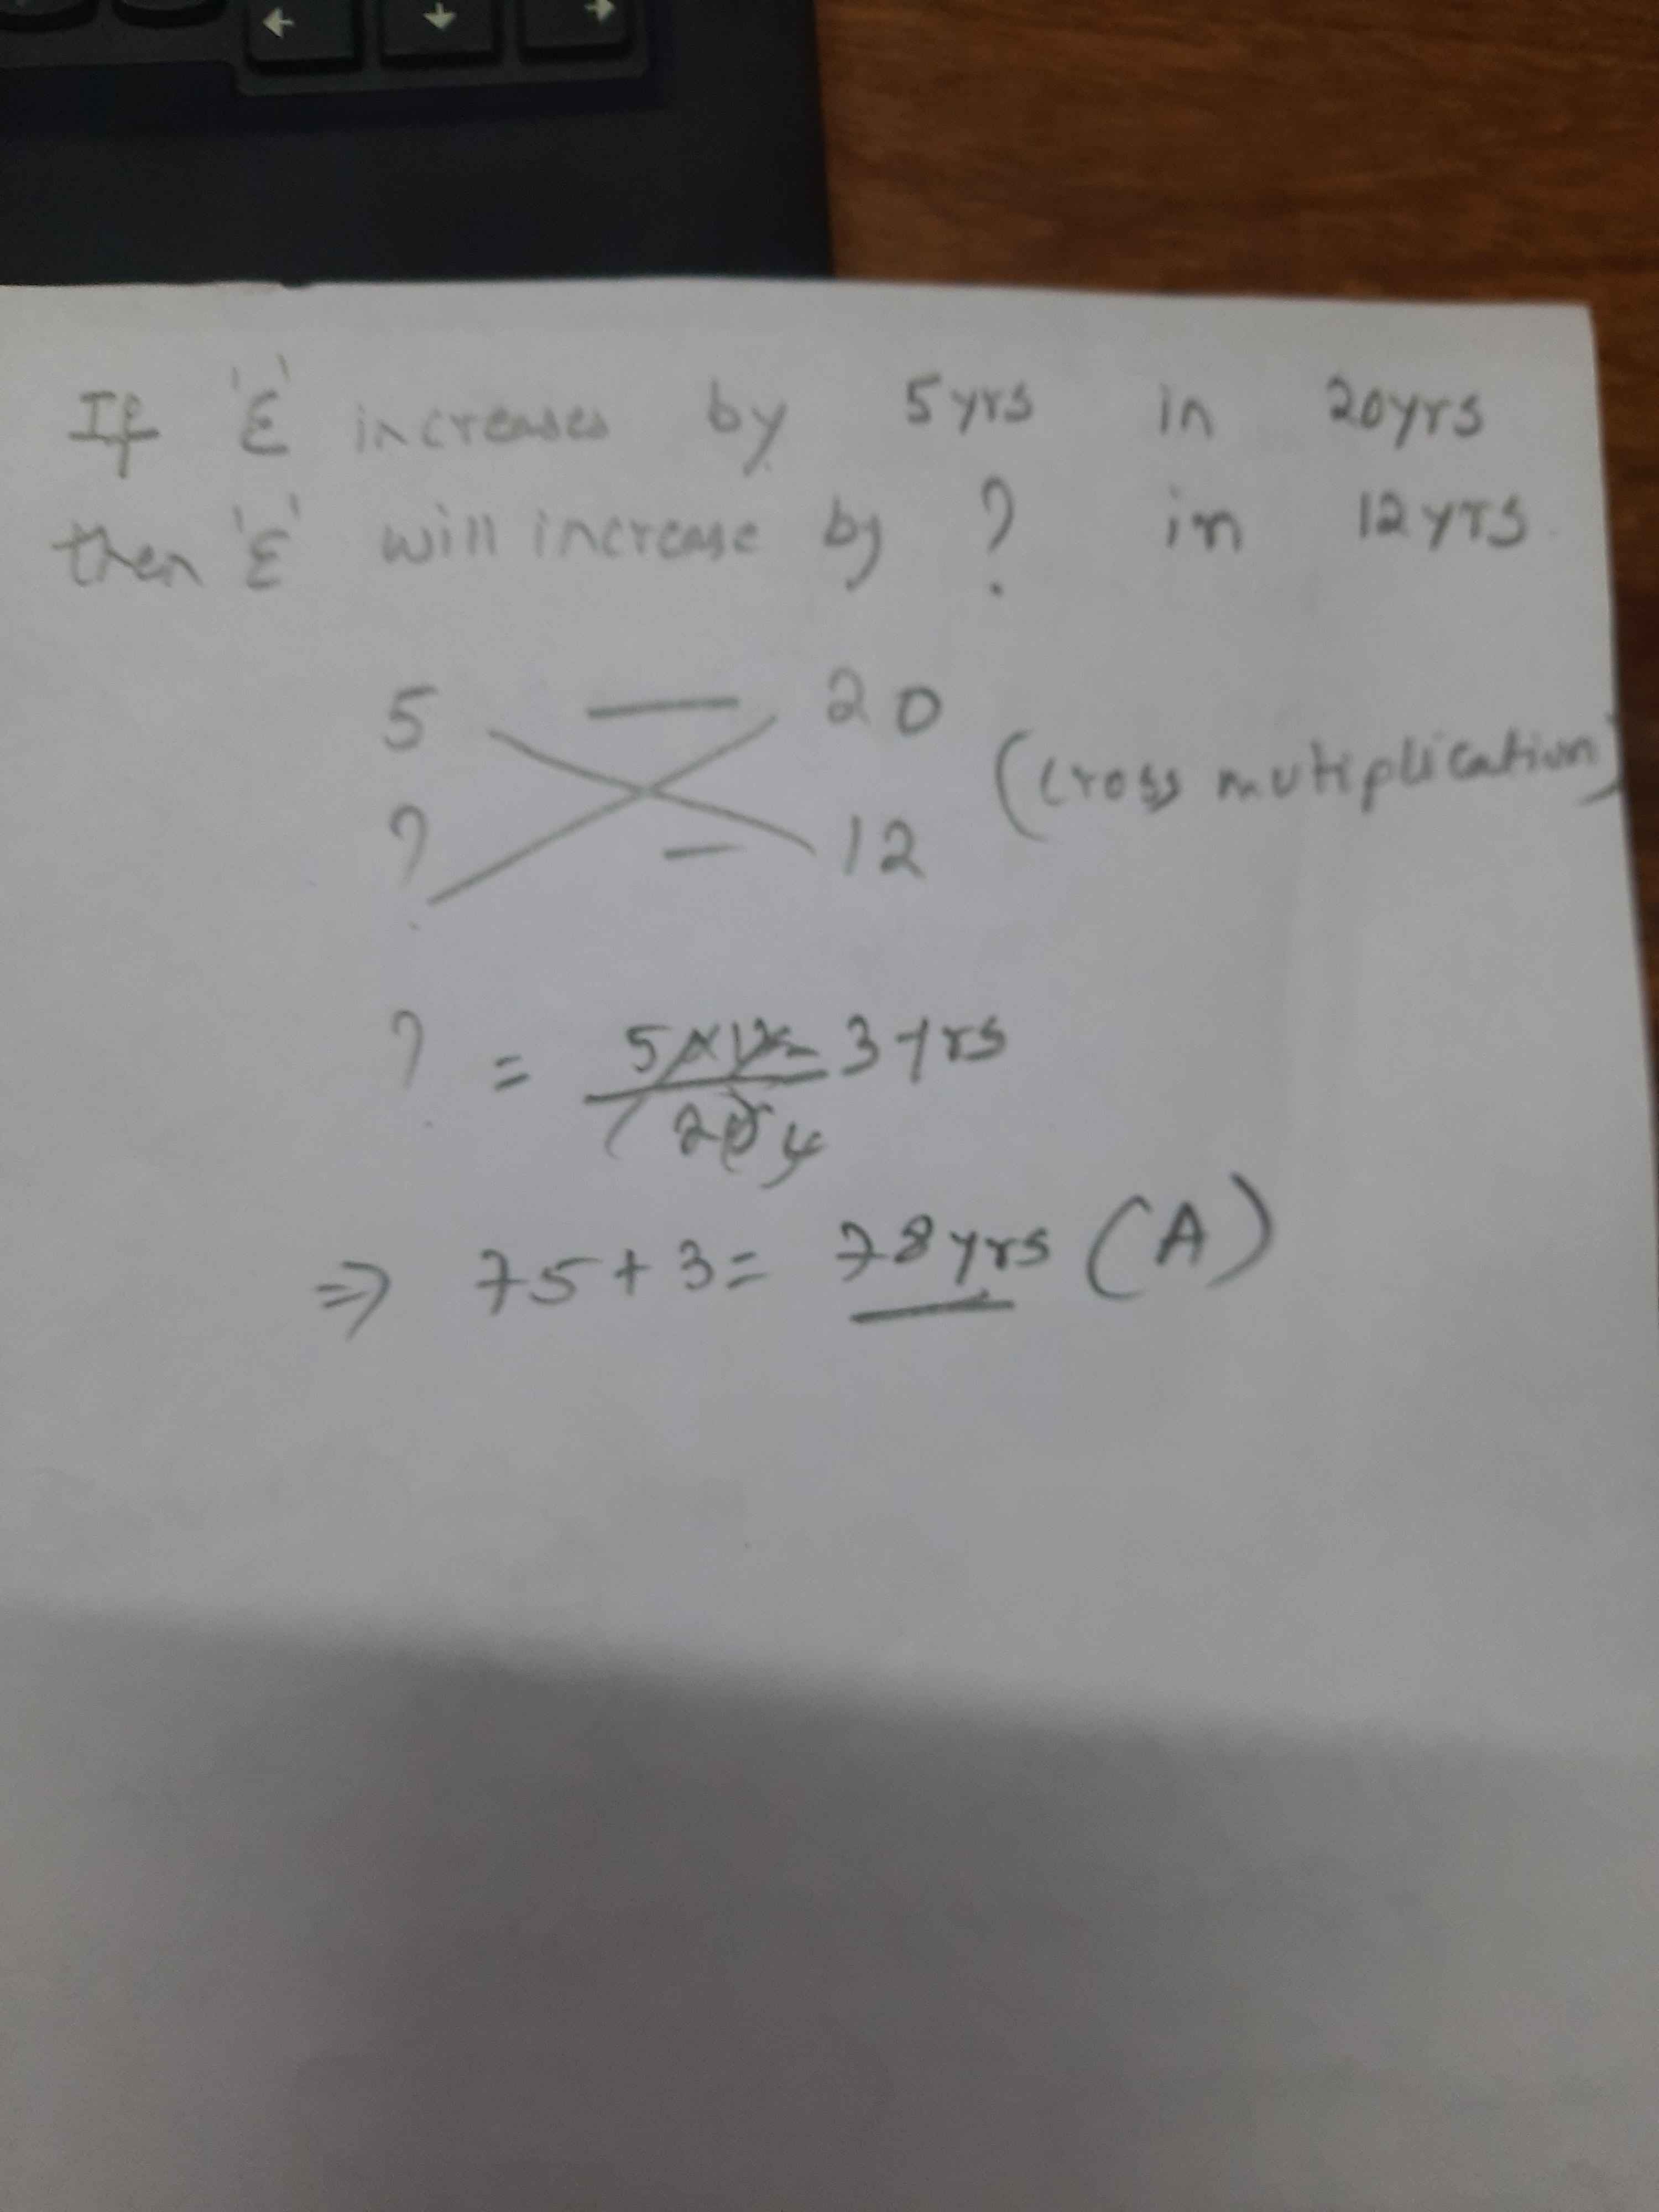 If 'E' increases by 5yrs in 20yrs
then 'E' will increase by ? in 12yrs
5 — 20
(cross mutiplication)
? — 12
? = 5x12 3yrs
20 4
⇒ 75+3= 78yrs (A)